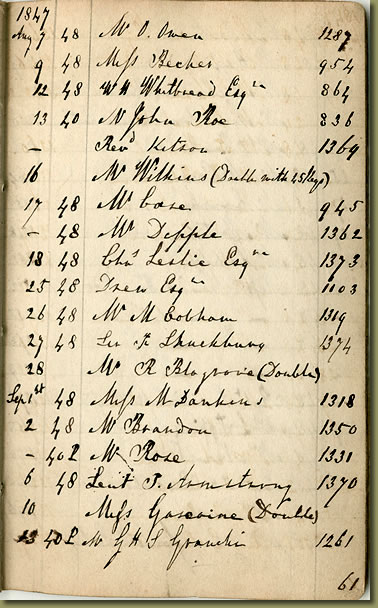 1847
Aug 7 48 Mr O. Owen 1287
9 48 Miss Becher 954
12 48 W H Whitbread Esqre 864
13 40 Mr John Roe 836
– Revd Kitson 1369
16 Mr Wilkins (Double with 45 Keys)
17 48 Mr Case 945
– 48 Mr Dipple 1362
18 48 Chas Leslie Esqre 1373
25 48 Drew Esqre 1103
26 48 Mr M Cobham 1319
27 48 Shuckburg 1374
28 Mr R Blagrove (Double)
Sep 1st 48 Miss M Dawkins 1318
2 48 Mr Brandon 1350
– 40 P Mr Rose 1331
6 48 Lieut T. Armstrong 1370
10 Miss Gascoine (Double)
13 40 P Mr G H S 1261
61